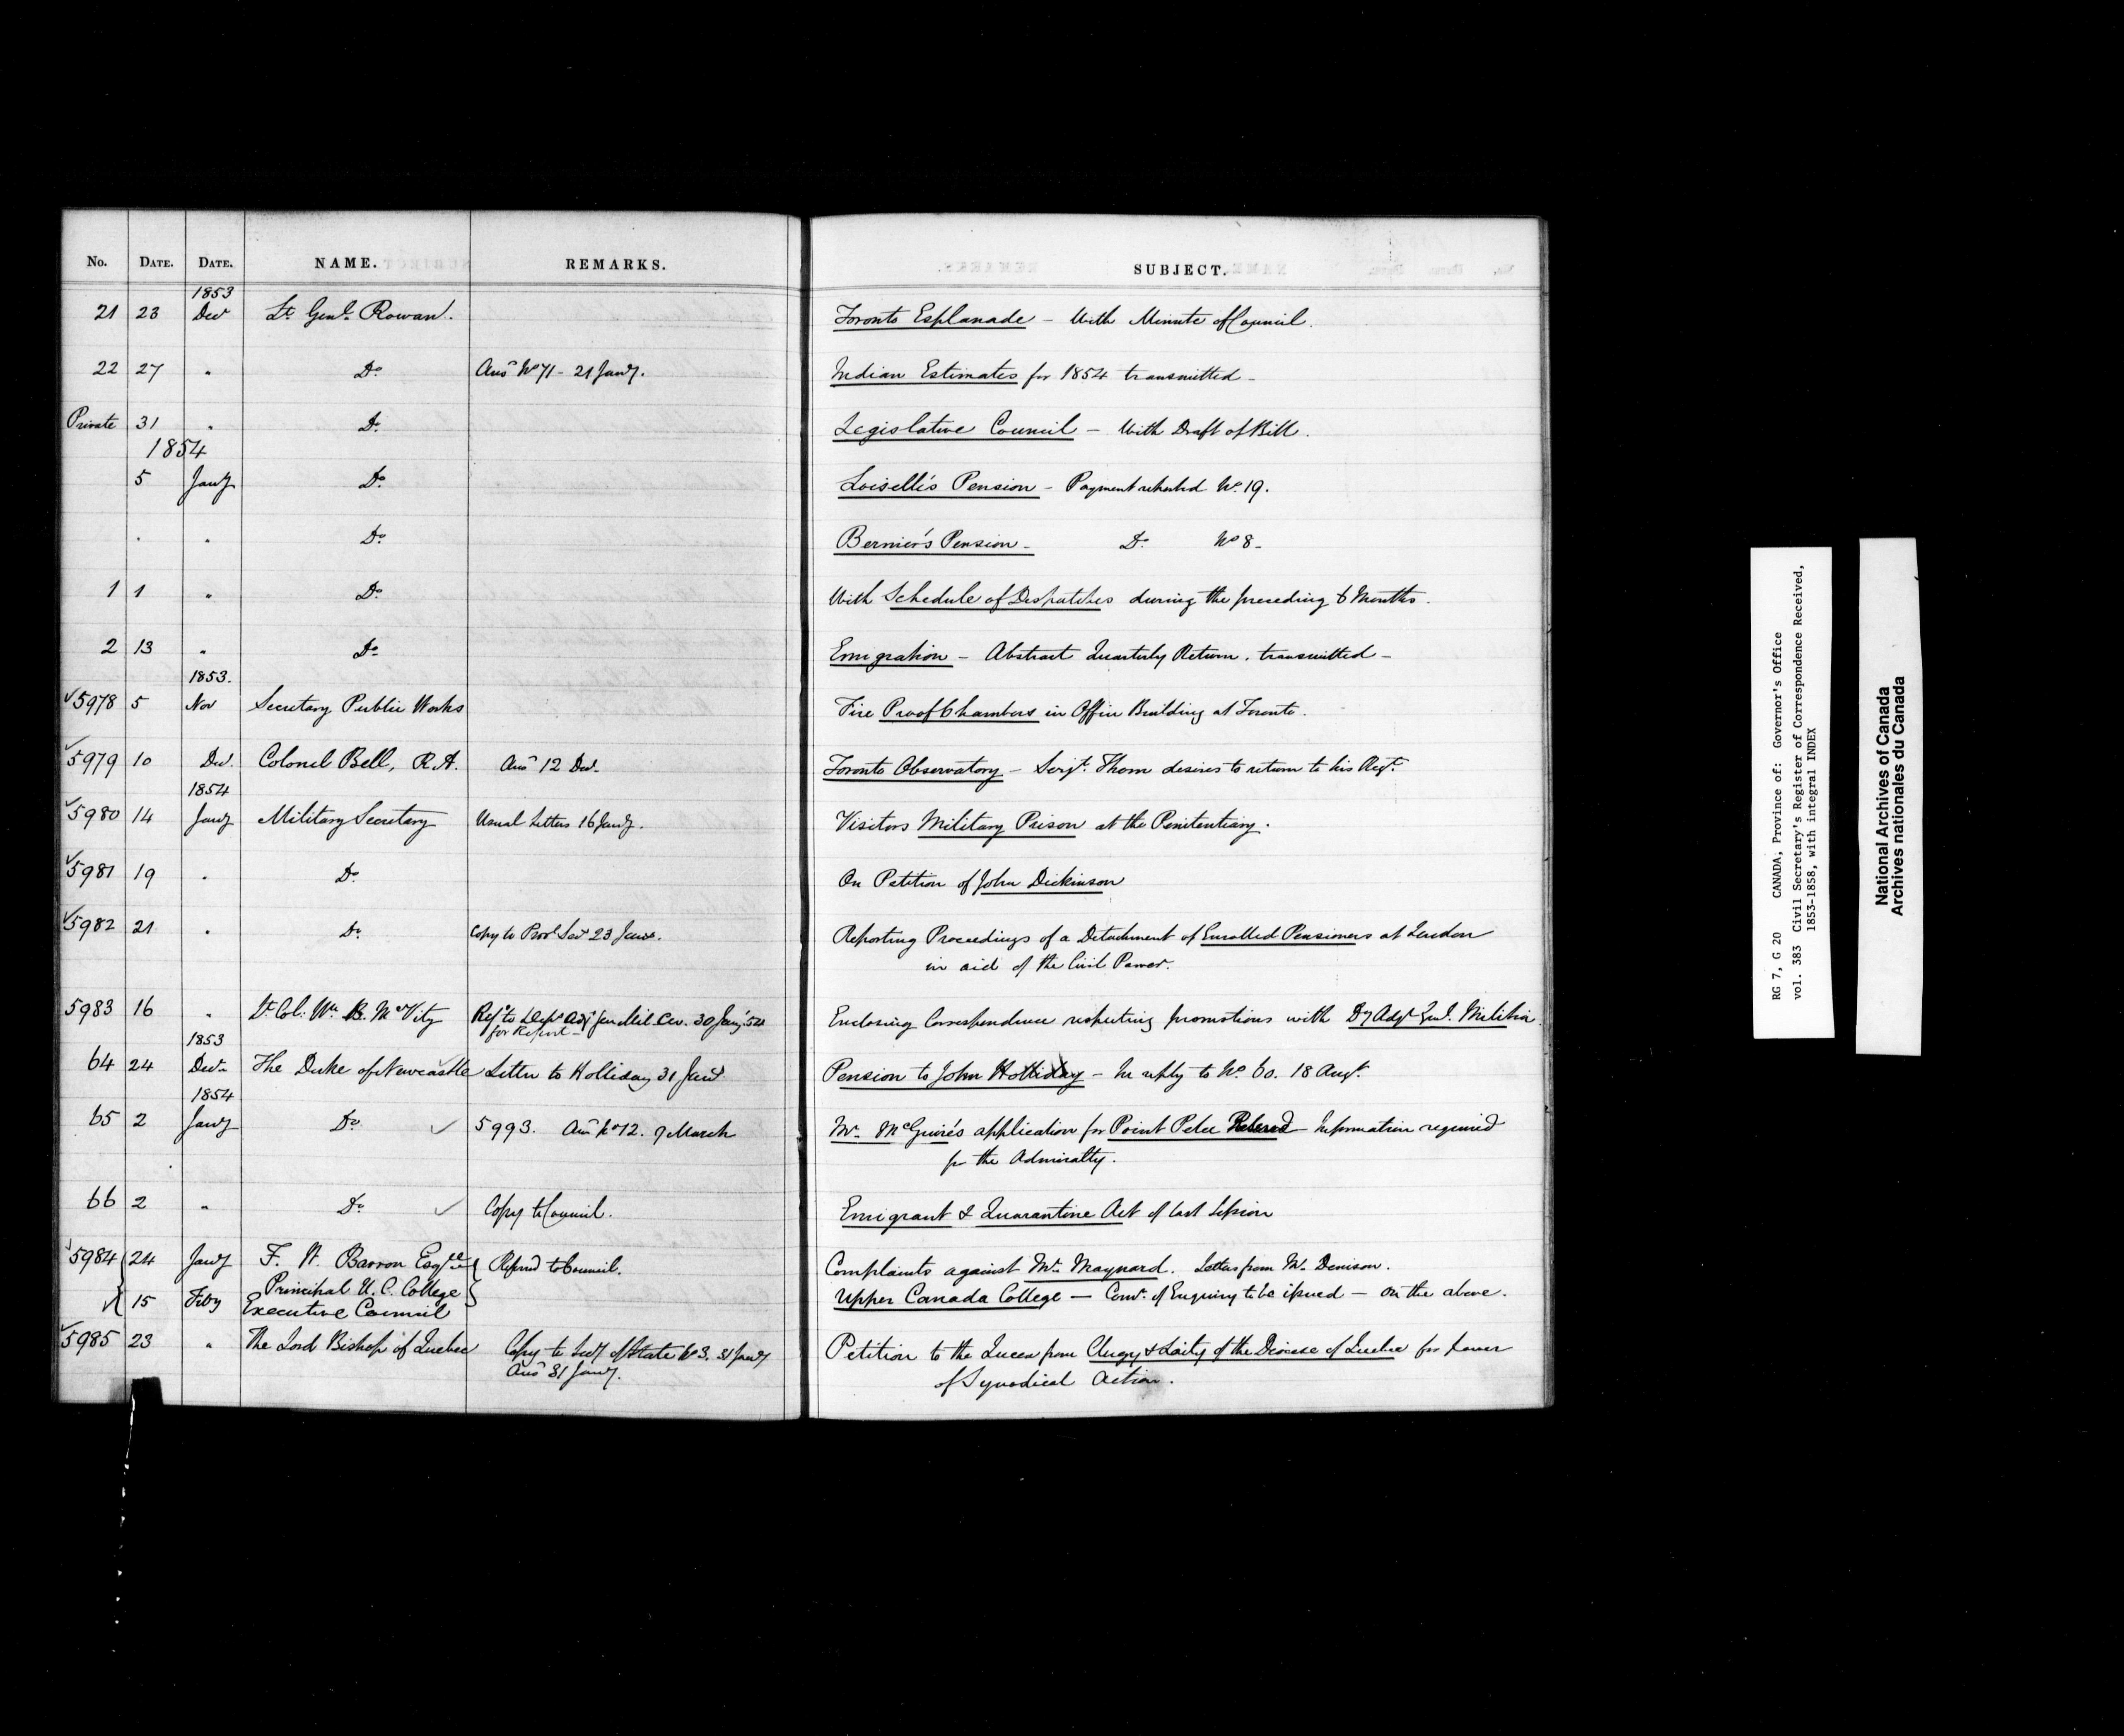 No. DATE. DATE. NAME. REMARKS. SUBJECT.
1853
21 23 Decr Lt. Genl. Rowan. Toronto Esplanade - With Minute of Council.
22 27 " Do. Ansd No 71 - 21 Jany. Indian Estimates for 1854 transmitted -
Private 31 " Do. Legislative Council - With Draft of Bill.
1854
5 Jany Do. Loiselle's Pension - Payment reported No. 19.
" " Do. Bernier's Pension - Do. No 8 -
1 1 " Do. With Schedule of Despatches during the preceding 6 Months.
2 13 " Do. Emigration - Abstract Quarterly Return. transmitted -
1853.
5978 5 Nov Secretary Public Works Fire Proof Chambers in Office Building at Toronto.
5979 10 Decr. Colonel Bell, R.A. Ansd 12 Decr. Toronto Observatory - Serjt. Thom desires to return to his Regt.
1854
5980 14 Jany Military Secretary Usual Letters 16 Jany. Visitors Military Prison at the Penitentiary.
5981 19 " Do. On Petition of John Dickinson
5982 21 " Do. Copy to Provl Secy 23 Jany. Reporting Proceedings of a Detachment of Enrolled Pensioners at London
in aid of the Civil Power.
5983 16 " Lt. Col. Wm. B. McVity Refd to Depy Adjt Gen Mil. 30 Jany 54 Enclosing Correspondence respecting promotions with Dy Adjt Genl. Militia.
for Report -
1853
64 24 Decr The Duke of Newcastle Letter to Holliday 31 Jany Pension to John Holliday - In reply to No. 60. 18 Augt.
1854
65 2 Jany Do. 5993. Ansd No 12. 9 March Mr. McGuire's application for Point Pelee - Information required
for the Admiralty.
66 2 " Do. Copy to Council. Emigrant & Quarantine Act of last Session
5984 24 Jany F. W. Barron Esqre Referred to Council. Complaints against Mr. Maynard. Letter from Mr. Denison.
Principal U. C. College
15 Feby Executive Council Upper Canada College - Comn. of Enquiry to be issued - on the above.
5985 23 " The Lord Bishop of Quebec Copy to Secy of State No 3. 31 Jany Petition to the Queen from Clergy & Laity of the Diocese of Quebec for power
Ansd 31 Jany. of Synodical Action.
RG 7, G 20 CANADA, Province of: Governor's Office
vol. 383 Civil Secretary's Register of Correspondence Received,
1853-1858, with integral INDEX
National Archives of Canada
Archives nationales du Canada